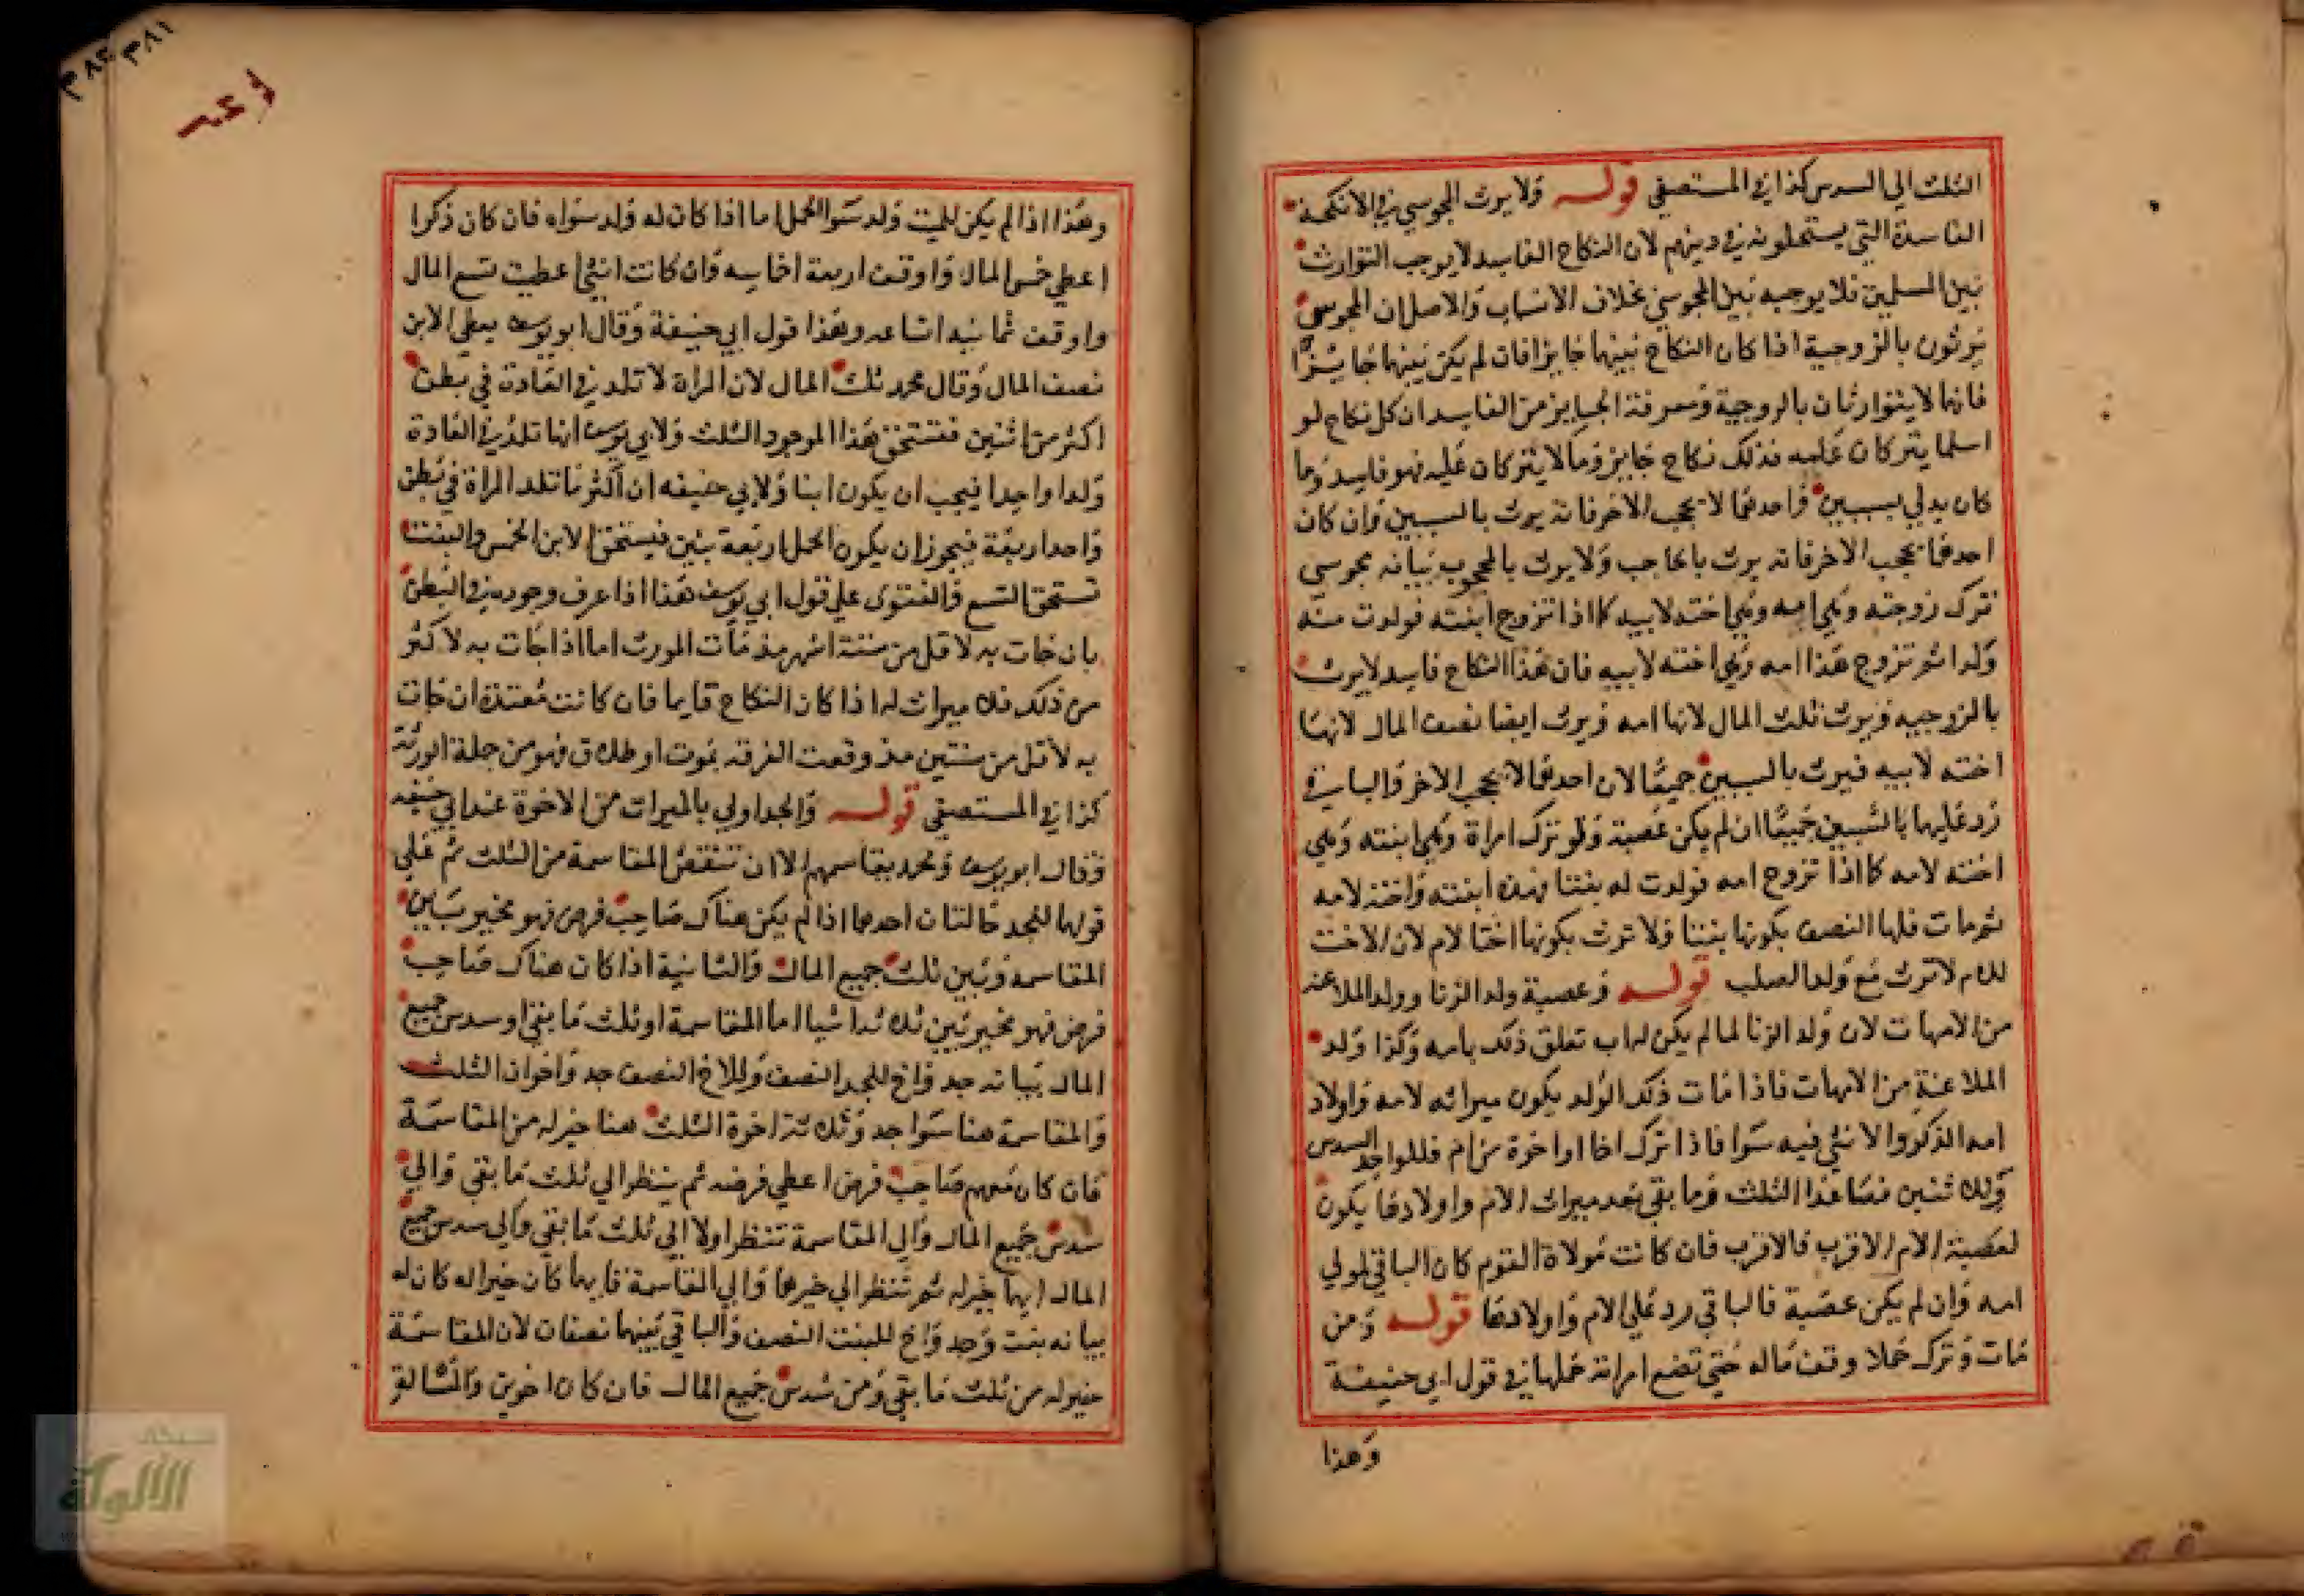 الثلث الي السدس كذا في المستصفى قوله ولا يرث المجوسي في الانكحة
الفاسدة التي يستحلونه في دينهم لان النكاح الفاسد لا يوجب التوارث
بين المسلمين فلا يوجبه بين المجوسي بخلاف الانساب والاصل ان المجوسي
يرثون بالزوجية اذا كان النكاح بينهما جايزا فان لم يكن بينهما جايزا
فانهما لا يتوارثان بالزوجية ومعرفة الجايز من الفاسد ان كل نكاح لو
اسلما يتركان عليه فذلك نكاح جايز وما لا يتركان عليه فهو فاسد وما
كان يدلي بسببين واحدهما لا يحجب الاخر فانه يرث بالسببين وان كان
احدهما يحجب الاخر فانه يرث بالحاجب ولا يرث بالمحجوب بيانه مجوسي
ترك زوجته وهي امه وهي اخته لابيه كما اذا تزوج ابنته فولدت منه
ولدا ثم تزوج هذا امه وهي اخته لابيه فان هذا النكاح فاسد لا يرث
بالزوجيه ويرث ثلث المال لانها امه ويرث ايضا نصف المال لانها
اخته لابيه فيرث بالسببين جميعا لان احدهما لا يحجب الاخر والباقي
رد عليها بالسببين جميعا ان لم يكن عصبة ولو ترك امراة وهي ابنته وهي
اخته لامه كما اذا تزوج امه فولدت له بنتا فهذه ابنته واخته لامه
ثم مات فلها النصف بكونها بنتا ولا ترث بكونها اختا لام لان الاخت
للام لا ترث مع ولد الصلب قوله وعصبة ولد الزنا وولد الملاعنه
من الامهات لان ولد الزنا لما لم يكن له اب تعلق ذلك بامه وكذا ولد
الملاعنة من الامهات فاذا مات ذلك الولد يكون ميراثه لامه واولاد
امه الذكر والانثي فيه سوا فاذا ترك اخا او اخوة من ام فللواحد السدس
وللاثنين فصاعدا الثلث وما بقي بعد ميراث الام واولادها يكون
لعصبة الام الاقرب فالاقرب فان كانت مولاة القوم كان الباقي لمولي
امه وان لم يكن عصبة فالباقي رد علي الام واولادها قوله ومن
مات وترك حملا وقف ماله حتي تضع امراته حملها في قول ابي حنيفة
وهذا
٣٨١
٣٨٢
وهذا اذا لم يكن للميت ولد سوا الحمل اما اذا كان له ولد سواه فان كان ذكرا
اعطي خمس المال واوقف اربعة اخماسه وان كانت انثي اعطيت تسع المال
واوقف ثمانيه اتساعه وهذا قول ابي حنيفة وقال ابو يوسف يعطي الابن
نصف المال وقال محمد ثلث المال لان المراة لا تلد في العادة في بطن
اكثر من اثنين فتستحق هذا الموجود الثلث ولابي يوسف انها تلد في العادة
ولدا واحدا فيجب ان يكون ابنا ولابي حنيفه ان اكثر ما تلد المراة في بطن
واحد اربعة فيجوز ان يكون الحمل اربعة بنين فيستحق الابن الخمس والبنت
تستحق التسع والفتوى على قول ابي يوسف هذا اذا عرف وجوده في البطن
بان جات به لاقل من ستة اشهر مذ مات المورث اما اذا جات به لاكثر
من ذلك فلا ميراث له اذا كان النكاح قايما فان كانت معتدة ان جات
به لاقل من سنتين مذ وقعت الفرقه بموت او طلاق فهو من جملة الورثة
كذا في المستصفى قوله والجد اولي بالميراث من الاخوة عند ابي حنيفه
وقال ابو يوسف ومحمد يقاسمهم الا ان تنقصه المقاسمة من الثلث ثم علي
قولهما للجد حالتان احدهما اذا لم يكن هناك صاحب فرض فهو مخير بين
المقاسمه وبين ثلث جميع المال والثانية اذا كان هناك صاحب
فرض فهو مخير بين ثلاثة اشيا اما المقاسمة او ثلث ما بقي او سدس جميع
المال بيانه جد واخ للجد النصف وللاخ النصف جد واخوان الثلث
والمقاسمة هنا سوا جد وثلاثة اخوة الثلث هنا خير له من المقاسمة
فان كان معهم صاحب فرض اعطي فرضه ثم ينظر الي ثلث ما بقي والي
سدس جميع المال والي المقاسمة تنظر اولا الي ثلث ما بقي والي سدس جميع
المال ايهما خير له ثم تنظر الي خيرهما والي المقاسمة فايهما كان خيرا له كان له
بيانه بنت وجد واخ للبنت النصف والباقي بينهما نصفان لان المقاسمة
خير له من ثلث ما بقي ومن سدس جميع المال فان كان اخوين
شبكة
الألوكة